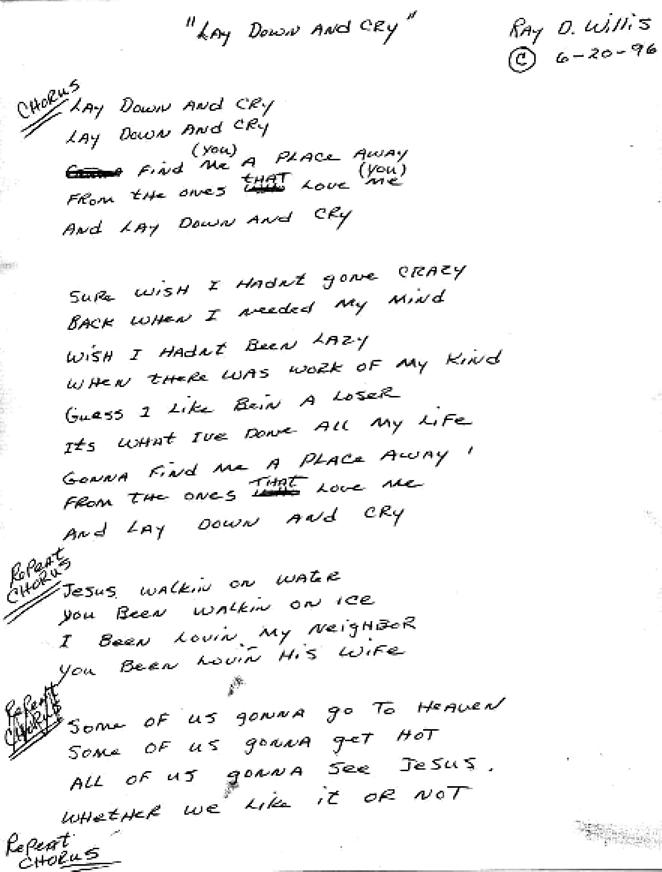 "LAY DOWN AND CRY"
RAY D. Willis
© 6-20-96
CHORUS
LAY DOWN AND CRY
LAY DOWN AND CRY
(YOU)
FIND ME A PLACE AWAY
THAT (YOU)
FROM THE ONES LOVE ME
AND LAY DOWN AND CRY
SURE WISH I HADNT gONE CRAZY
BACK WHEN I NEEDED MY MIND
WISH I HADNT BEEN LAZY
WHEN THERE WAS WORK OF MY KIND
GUESS I LIKE BEIN A LOSER
ITS WHAT IVE DONE ALL MY LIFE
GONNA FIND ME A PLACE AWAY
THAT
FROM THE ONES LOVE ME
AND LAY DOWN AND CRY
REPEAT
CHORUS
JESUS WALKIN ON WATER
YOU BEEN WALKIN ON ICE
I BEEN LOVIN MY NEIGHBOR
YOU BEEN LOVIN HIS WIFE
REPEAT
CHORUS
SOME OF US gONNA gO TO HEAVEN
SOME OF US gONNA gET HOT
ALL OF US gONNA SEE JESUS.
WHETHER WE LIKE IT OR NOT
REPEAT
CHORUS